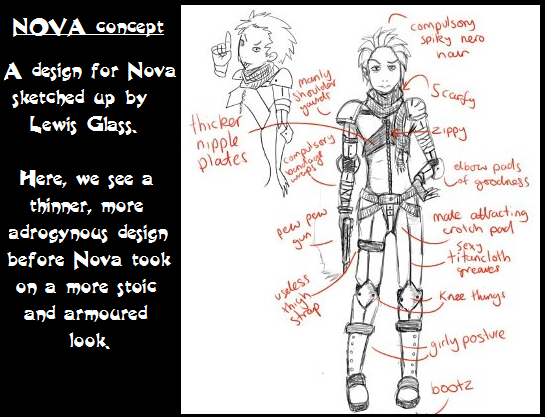 NOVA concept
A design for Nova
sketched up by
Lewis Glass.
Here, we see a
thinner, more
adrogynous design
before Nova took
on a more stoic
and armoured
look.
compulsory
spiky hero
hair
manly
shoulder
guards
Scarfy
thicker
nipple
plates
zippy
compulsory
bandage
wraps
elbow pads
of goodness
pew pew
gun
male attracting
crotch pad
sexy
titancloth
greaves
useless
thigh
strap
Knee thungs
girly posture
bootz